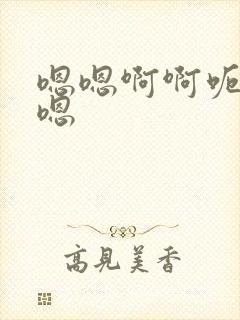 嗯嗯啊啊呃
嗯
高見美香